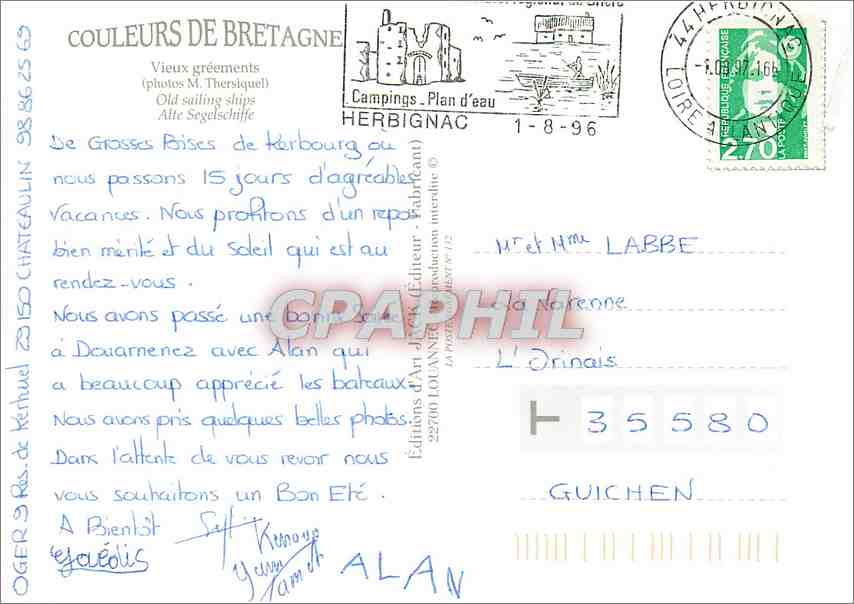 COULEURS DE BRETAGNE
Vieux gréements
(photos M. Thersiquel)
Old sailing ships
Alte Segelschiffe
De Grosses Bises de Kerbourg où
nous passons 15 jours d'agréables
vacances. Nous profitons d'un repos
bien mérité et du soleil qui est au
rendez-vous.
Nous avons passé une bonne soirée
à Douarnenez avec Alan qui
a beaucoup apprécié les bateaux.
Nous avons pris quelques belles photos.
Dans l'attente de vous revoir nous
vous souhaitons un Bon Eté.
A Bientôt
ALAN
OGER 9 Res. de Kerhuel 29150 CHATEAULIN 98 86 25 69
Éditions d'Art JACK (Éditeur - Fabricant)
22700 LOUANNEC production interdite ©
Campings - Plan d'eau
HERBIGNAC
1-8-96
44 HERBIGNAC
LOIRE ATLANTIQUE
REPUBLIQUE FRANÇAISE
LA POSTE
2,70
Mr et Mme LABBE
La Varenne
L'Orinais
35580
GUICHEN
CPAPHIL